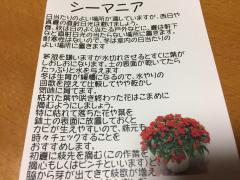 シーマニア
日当たりのよい場所が適していますが、西日や
真夏の直射日光は避けましょう。
春、秋は日のよく当たる戸外などに、夏は軒下
など直射日光の当たらない場所に置きます。
耐寒性はないので、冬は室内の日当たりの
よい場所に置きます
茅姫を嫌いますが水切れさせるとすぐに葉が
しおしおになります。土の表面が乾いてたら
たっぷりと水を与えます
冬は生育が緩慢になるので、水やりの
回数を控えて比較してやや乾かし
気味に育てます。
枯れた葉や咲き終わった花はこまめに
摘むようにしましょう。
特に枯れて落ちた花や葉を
鉢土の表面に放置しておくと
カビが生えやすいので、鉢元も
時々チェックすることを
おすすめします。
初夏に枝先を摘む(この作業を
摘心もしくは心といいます)と
脇から芽が出てきて枝数が増え